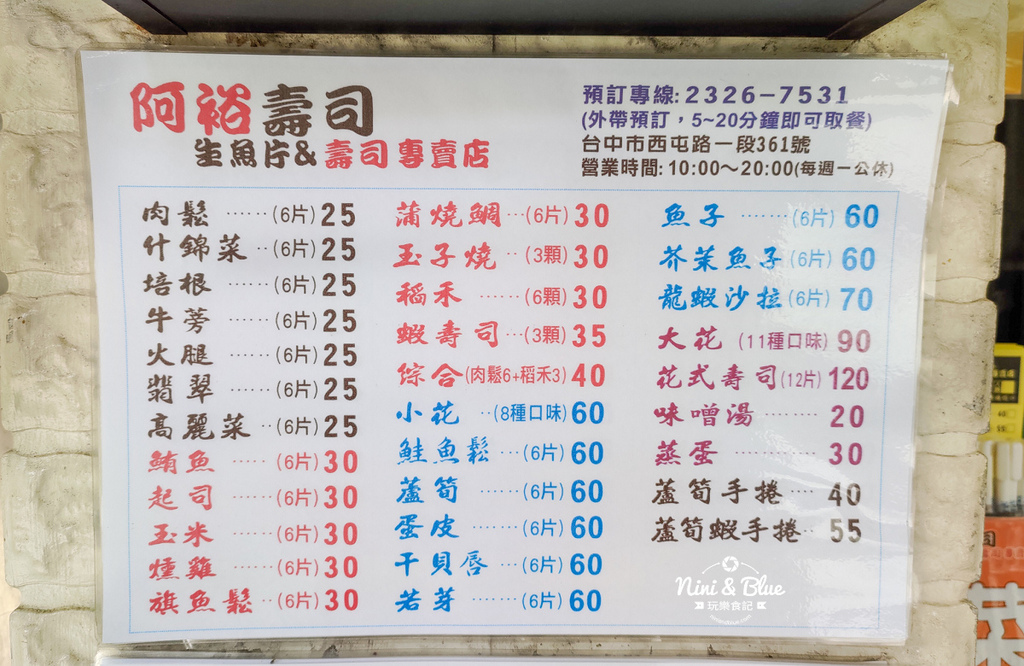 阿裕壽司
生魚片&壽司專賣店
預訂專線: 2326-7531
(外帶預訂，5~20分鐘即可取餐)
台中市西屯路一段361號
營業時間: 10:00～20:00(每週一公休)
肉鬆 ······(6片) 25
什錦菜 ··(6片) 25
培根 ·····(6片) 25
牛蒡 ·····(6片) 25
火腿 ·····(6片) 25
翡翠 ·····(6片) 25
高麗菜 ··(6片) 25
鮪魚 ·····(6片) 30
起司 ·····(6片) 30
玉米 ·····(6片) 30
燻雞 ·····(6片) 30
旗魚鬆 ··(6片) 30
蒲燒鯛 ···(6片) 30
玉子燒 ··(3顆) 30
稻禾 ······(6顆) 30
蝦壽司 ···(3顆) 35
綜合(肉鬆6+稻禾3) 40
小花 ··(8種口味) 60
鮭魚鬆 ···(6片) 60
蘆筍 ······(6片) 60
蛋皮 ······(6片) 60
干貝唇 ···(6片) 60
若芽 ······(6片) 60
魚子 ·······(6片) 60
芥茉魚子(6片) 60
龍蝦沙拉(6片) 70
大花 (11種口味) 90
花式壽司(12片) 120
味噌湯 ········ 20
蒸蛋 ············ 30
蘆筍手捲 ···· 40
蘆筍蝦手捲·· 55
Nini & Blue
玩樂食記